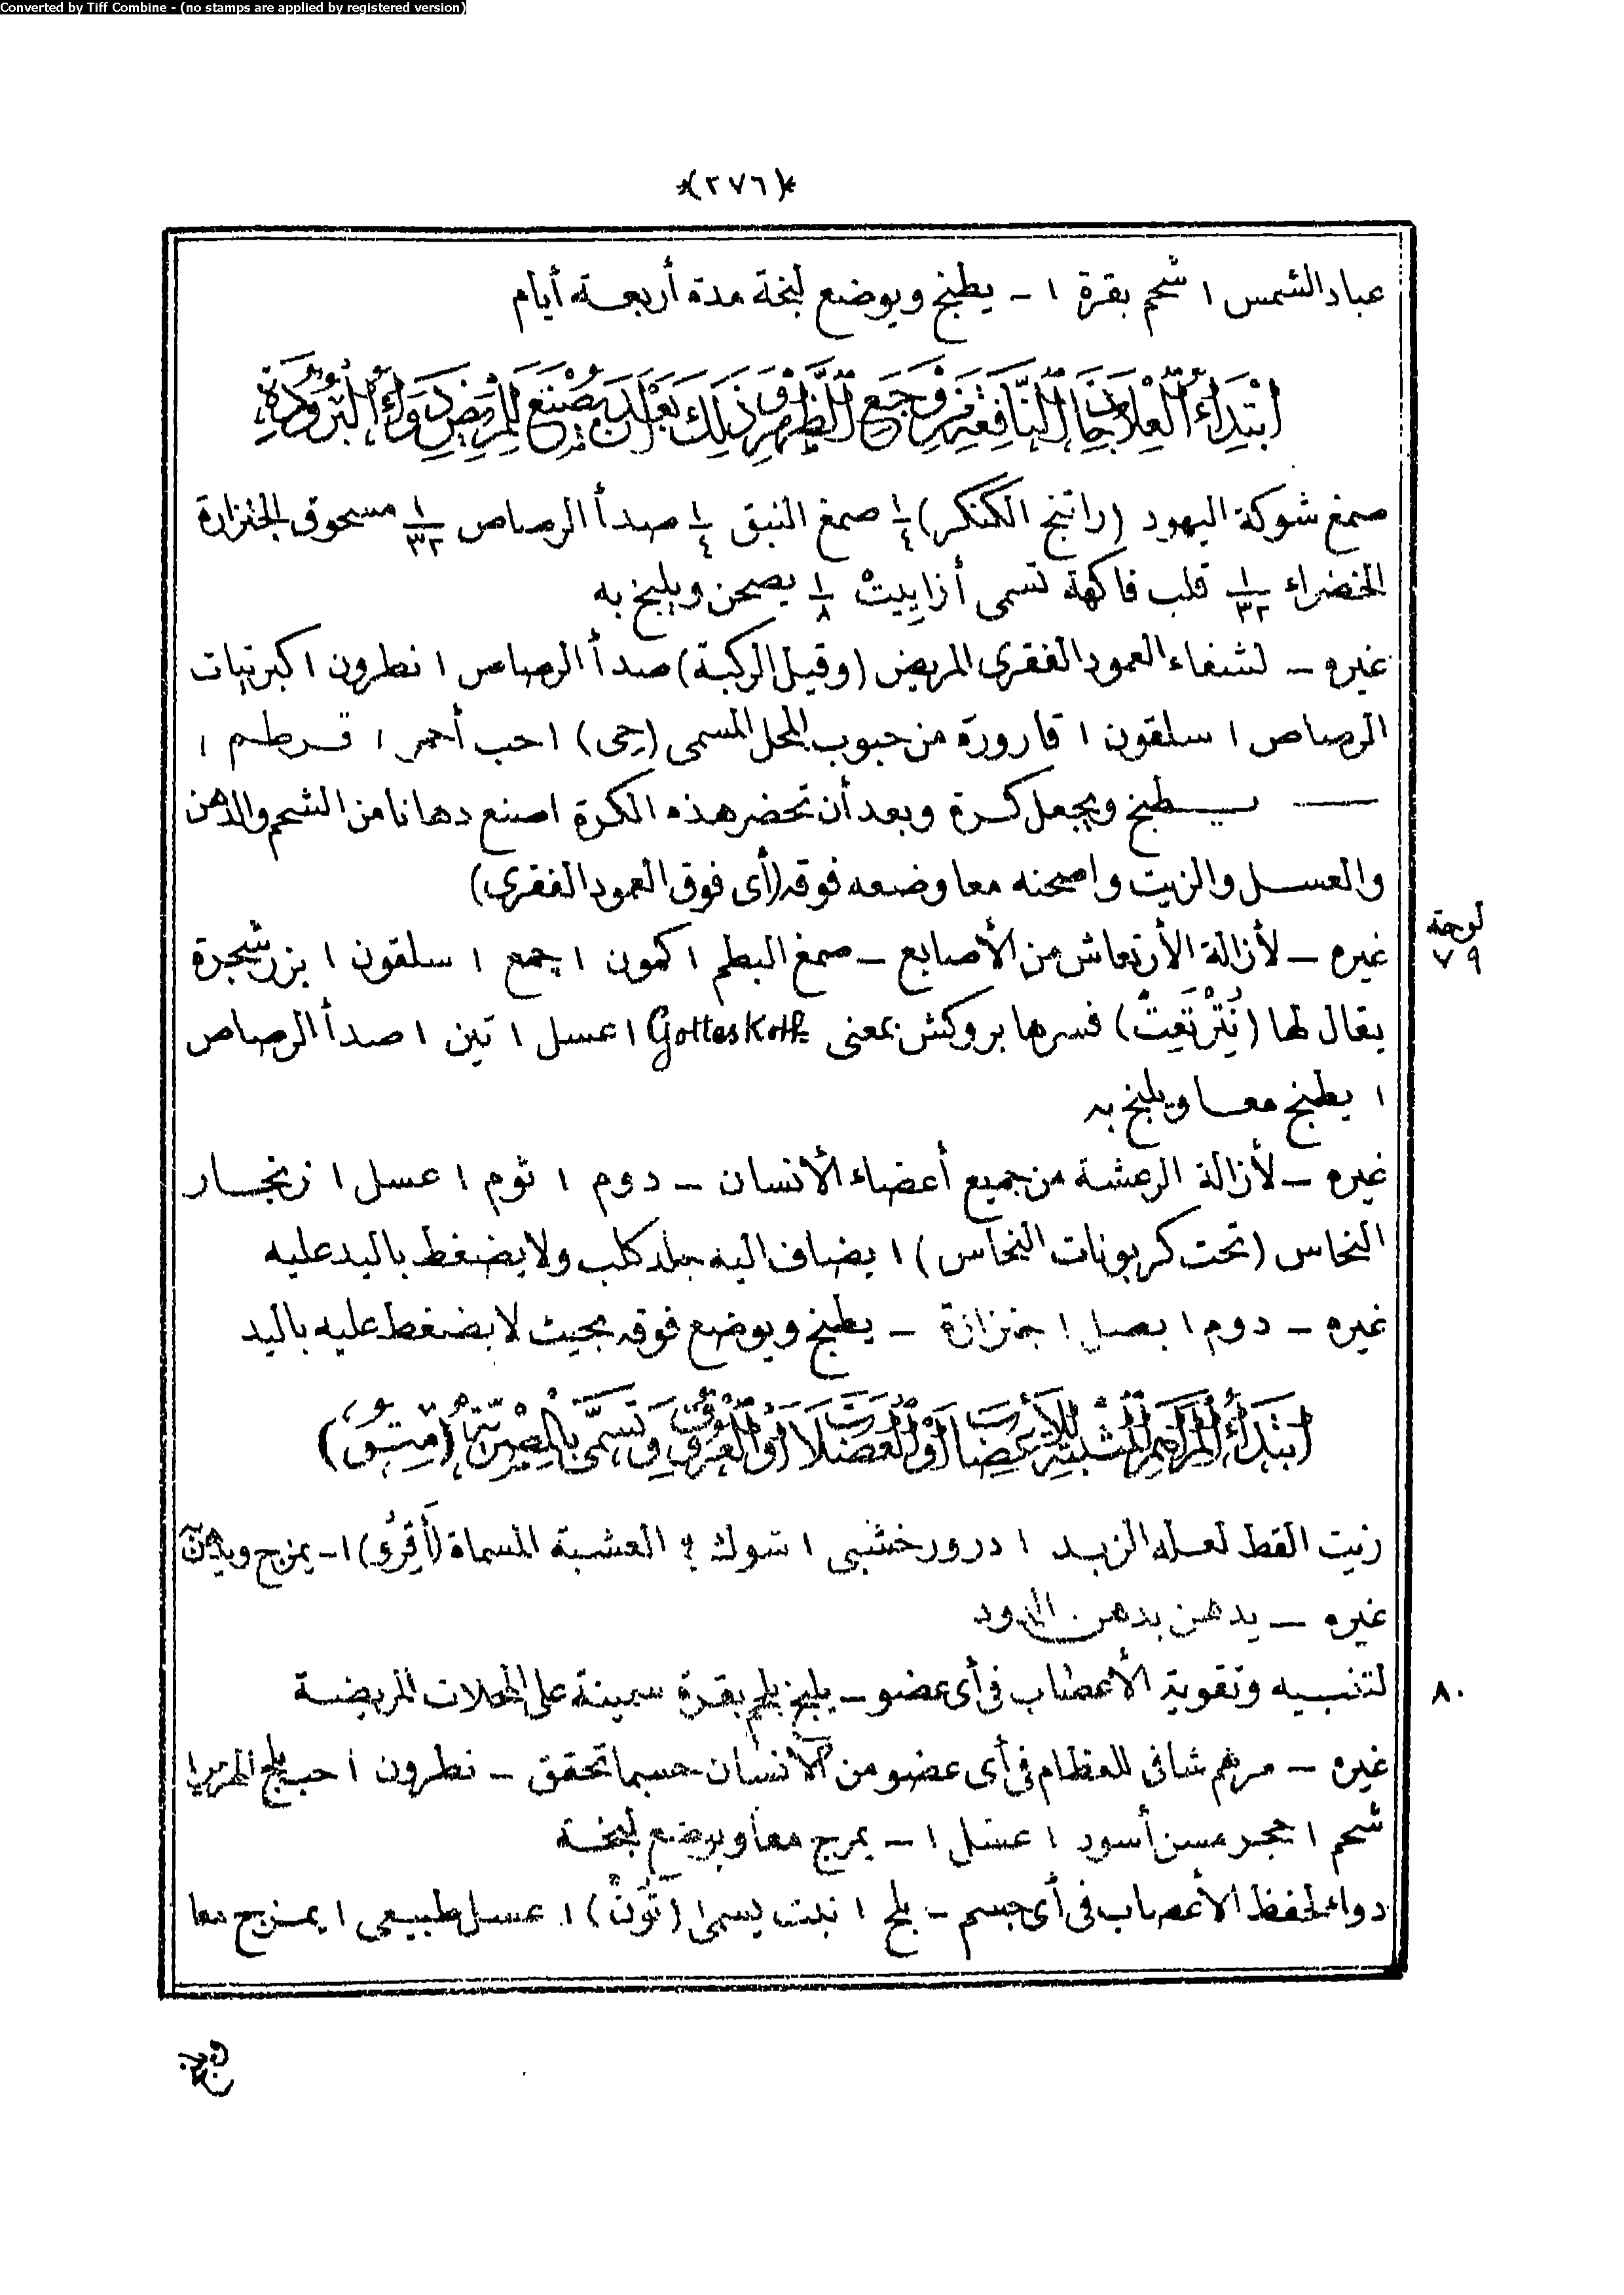 Converted by Tiff Combine - (no stamps are applied by registered version)
*(٢٧٦)*
عباد الشمس ١ شحم بقرة ١ - يطبخ ويوضع لبخة مدة أربعة أيام
ابْتِدَاءُ الْعِلَاجَاتِ النَّافِعَةِ مِنْ وَجَعِ الظَّهْرِ وَذَلِكَ بَعْدَ أَنْ يُصْنَعَ لِلْمَرِيضِ دَوَاءُ الْبُرُودَةِ
صمغ شوكة اليهود (راتنج الكنكر) ١/٤ صمغ النبق ١/٤ صدأ الرصاص ١/٣٢ مسحوق الجنزارة
الخضراء ١/٣٢ قلب فاكهة تسمى أزاييت ١/٨ يصحن ويلبخ به
غيره - لشفاء العمود الفقرى المريض (وقيل الركبة) صدأ الرصاص ١ نطرون ١ كبريتات
الرصاص ١ سلقون ١ قارورة من حبوب المحل المسمى (حِمى) ١ حب أحمر ١ قرطم ١
— يطبخ ويجعل كرة وبعد أن تحضر هذه الكرة اصنع دهانا من الشحم والدهن
والعسل والزيت واصحنه معا وضعه فوقه (أى فوق العمود الفقرى)
لوحة
٧٩
غيره - لأزالة الأرتعاش من الأصابع - صمغ البطم ١ كمون ١ جمع ١ سلقون ١ بزر شجرة
يقال لها (نُتَرْتَعِتْ) فسرها بروكش بمعنى Gotteskoth ١ عسل ١ تين ١ صدأ الرصاص
١ يطبخ معا ويلبخ به
غيره - لأزالة الرعشة من جميع أعضاء الأنسان - دوم ١ ثوم ١ عسل ١ زنجار
النحاس (تحت كربونات النحاس) ١ يضاف اليه جلد كلب ولا يضغط باليد عليه
غيره - دوم ١ بصل ١ جنزارة - يطبخ ويوضع فوقه بحيث لا يضغط عليه باليد
ابْتِدَاءُ الْمَرَاهِمِ الْمُنَبِّهَةِ لِلأَعْصَابِ أَوْ الْعَضَلَاتِ أَوْ الْعُرُوقِ وَتُسَمَّى بِالْمِصْرِيَّةِ (مِتُو)
زيت القط لعله الزبد ١ درور خشبى ١ شوك ؟ العشبة المسماة (أَقِرُو) ١ - يمزج ويدهن
غيره - يدهن بدهن الدود
٨٠
لتنبيه وتقوية الأعصاب فى أى عضو - يلبخ بلحم بقرة سمينة على المحلات المريضة
غيره - مرهم شافى للعظام فى أى عضو من الأنسان حسبما تحقق - نطرون ١ حب بلح
شحم ١ حجر مسن أسود ١ عسل ١ - يمزج معا ويوضع لبخة
دواء لحفظ الأعصاب فى أى جسم - بلح ١ نبت يسمى (ثُونْ) ١ عسل طبيعى ١ يمزج معا